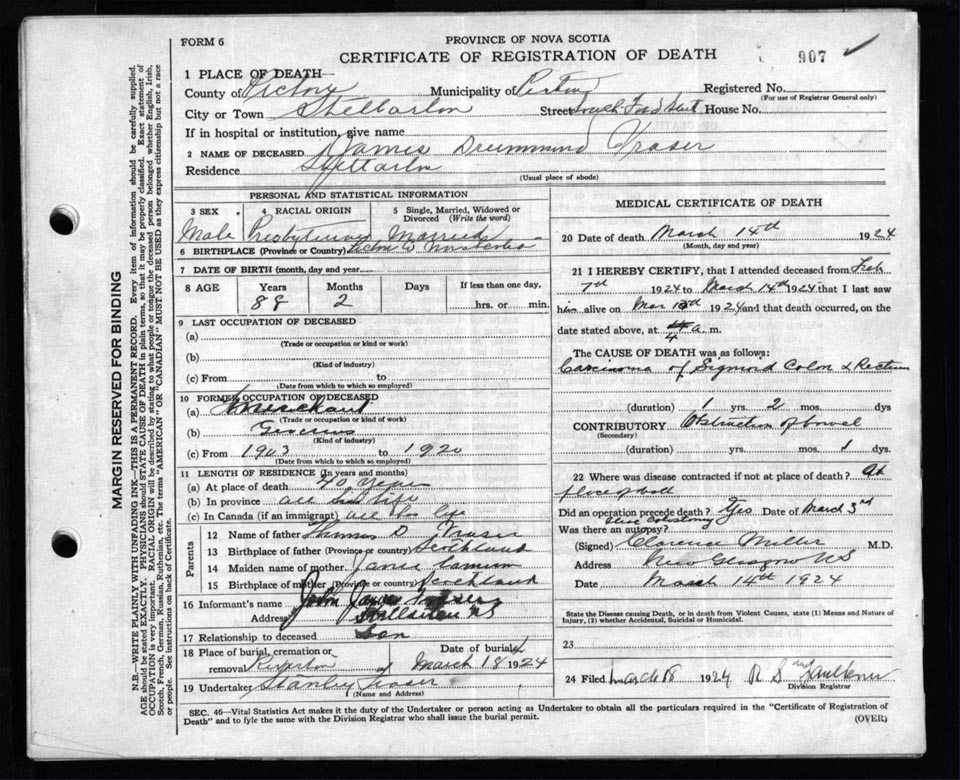 FORM 6
PROVINCE OF NOVA SCOTIA
CERTIFICATE OF REGISTRATION OF DEATH
907
MARGIN RESERVED FOR BINDING
N.B.—WRITE PLAINLY WITH UNFADING INK—THIS IS A PERMANENT RECORD. Every item of information should be carefully supplied.
AGE should be stated EXACTLY. PHYSICIANS should STATE CAUSE OF DEATH in plain terms, so that it may be properly classified. Exact statement of
OCCUPATION is very important. RACIAL ORIGIN will be described by stating to what people or tongue the deceased person belonged whether English, Irish,
Scotch, French, German, Russian, Ruthenian, etc. The terms "AMERICAN" OR "CANADIAN" MUST NOT BE USED as they express citizenship but not a race
or people. See instructions on back of Certificate.
1 PLACE OF DEATH
County of Pictou Municipality of Registered No.
(For use of Registrar General only)
City or Town Street House No.
If in hospital or institution, give name
2 NAME OF DECEASED James Drummond Fraser
Residence
(Usual place of abode)
PERSONAL AND STATISTICAL INFORMATION
3 SEX 4 RACIAL ORIGIN 5 Single, Married, Widowed or
Divorced (Write the word)
Male Presbyterian Married
6 BIRTHPLACE (Province or Country) Nova Scotia
7 DATE OF BIRTH (month, day and year)
8 AGE Years Months Days If less than one day,
88 2 hrs. or min.
9 LAST OCCUPATION OF DECEASED
(a)
(Trade or occupation or kind or work)
(b)
(Kind of industry)
(c) From to
(Date from which to which so employed)
10 FORMER OCCUPATION OF DECEASED
(a) Merchant
(Trade of occupation or kind of work)
(b)
(Kind of industry)
(c) From 1903 to 1920
(Date from which to which so employed)
11 LENGTH OF RESIDENCE (In years and months)
(a) At place of death 40 years
(b) In province all his life
(c) In Canada (if an immigrant) all his life
Parents
12 Name of father Thomas D Fraser
13 Birthplace of father (Province or country) Scotland
14 Maiden name of mother
15 Birthplace of mother (Province or country) Scotland
16 Informant's name John James Fraser
Address N S
17 Relationship to deceased Son
18 Place of burial, cremation or Date of burial
removal Riverton March 18 1924
19 Undertaker Stanley Fraser
(Name and Address)
MEDICAL CERTIFICATE OF DEATH
20 Date of death March 14th 1924
(Month, day and year)
21 I HEREBY CERTIFY, that I attended deceased from Feb
7th 1924 to March 14th 1924 that I last saw
him alive on Mar 1924 and that death occurred, on the
date stated above, at 4 a. m.
The CAUSE OF DEATH was as follows:
Carcinoma of Sigmoid Colon & Rectum
(duration) 1 yrs. 2 mos. dys
CONTRIBUTORY Obstruction of bowel
(Secondary)
(duration) yrs. mos. 1 dys
22 Where was disease contracted if not at place of death? At
place of death
Did an operation precede death? Yes Date of March 3rd
Colostomy
Was there an autopsy?
(Signed) Clarence Miller M.D.
Address New Glasgow NS
Date March 14th 1924
State the Disease causing Death, or in death from Violent Causes, state (1) Means and Nature of
Injury, (2) whether Accidental, Suicidal or Homicidal.
23
24 Filed March 18 1924 R S
Division Registrar
SEC. 46—Vital Statistics Act makes it the duty of the Undertaker or person acting as Undertaker to obtain all the particulars required in the "Certificate of Registration of
Death" and to fyle the same with the Division Registrar who shall issue the burial permit.
(OVER)